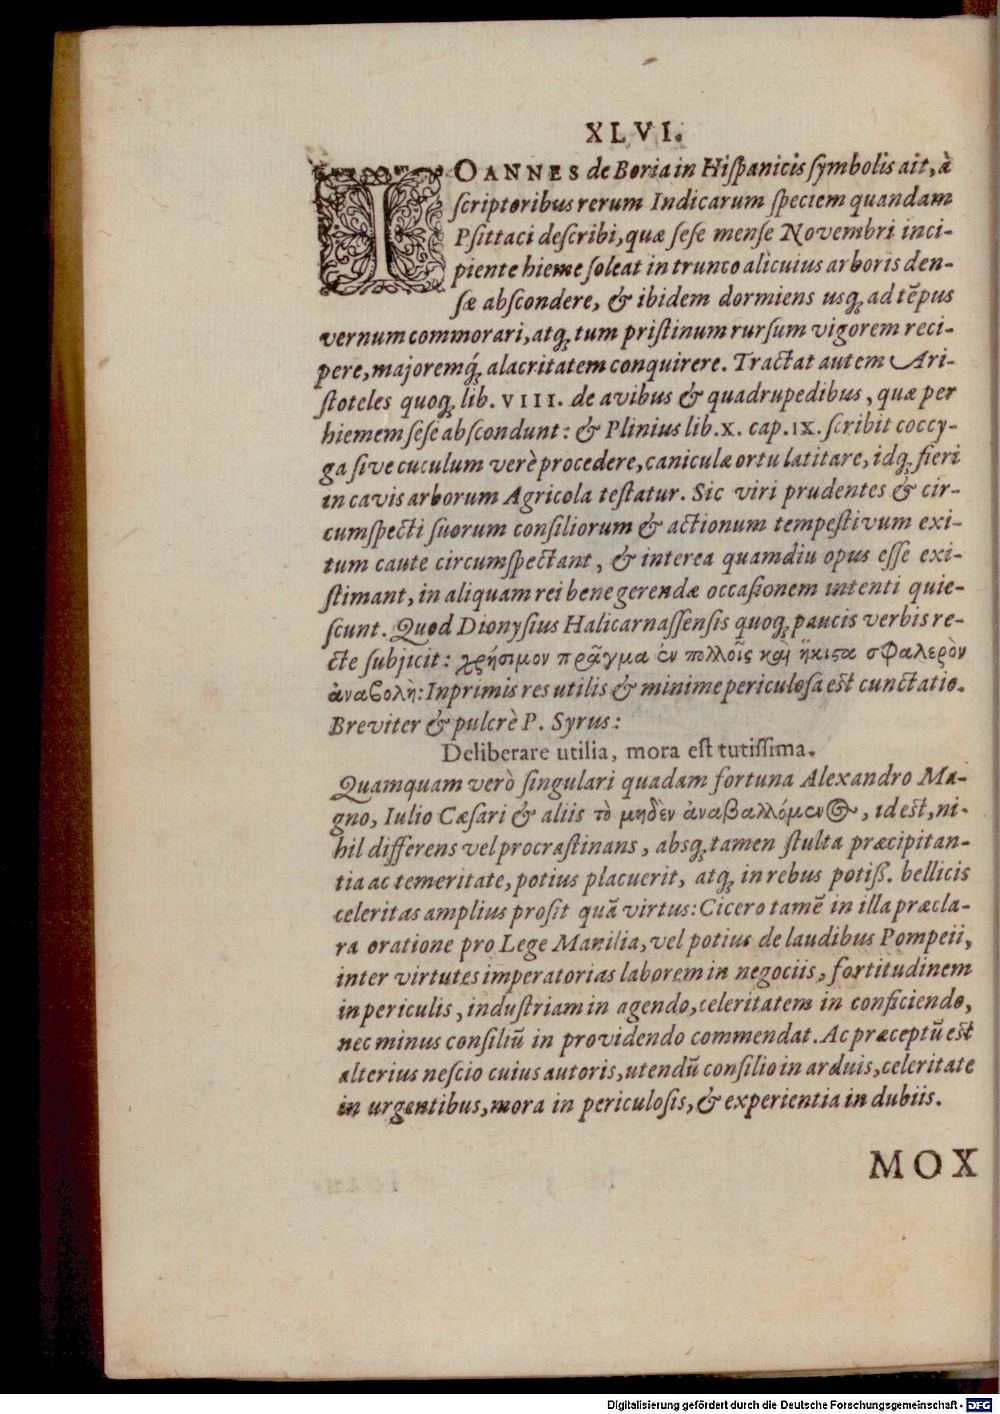 XLVI.
IOANNES de Boria in Hiſpanicis ſymbolis ait, à
ſcriptoribus rerum Indicarum ſpeciem quandam
Pſittaci deſcribi, quæ ſeſe menſe Novembri inci-
piente hieme ſoleat in trunco alicuius arboris den-
ſæ abſcondere, & ibidem dormiens usq; ad tēpus
vernum commorari, atq; tum priſtinum rurſum vigorem reci-
pere, majoremq́; alacritatem conquirere. Tractat autem Ari-
ſtoteles quoq; lib. VIII. de avibus & quadrupedibus, quæ per
hiemem ſeſe abſcondunt: & Plinius lib. X. cap. IX. ſcribit coccy-
ga ſive cuculum verè procedere, caniculæ ortu latitare, idq; fieri
in cavis arborum Agricola teſtatur. Sic viri prudentes & cir-
cumſpecti ſuorum conſiliorum & actionum tempeſtivum exi-
tum caute circumſpectant, & interea quamdiu opus eſſe exi-
ſtimant, in aliquam rei bene gerendæ occaſionem intenti quie-
ſcunt. Quod Dionyſius Halicarnaſſenſis quoq; paucis verbis re-
cte ſubjicit: χρήσιμον πρᾶγμα ἐν πολλοῖς καὶ ἥκιϛα σφαλερὸν
ἀναβολὴ: Inprimis res utilis & minime periculoſa est cunctatio.
Breviter & pulcrè P. Syrus:
Deliberare utilia, mora eſt tutiſſima.
Quamquam verò ſingulari quadam fortuna Alexandro Ma-
gno, Iulio Cæſari & aliis τὸ μηδὲν ἀναβαλλόμενος, id est, ni-
hil differens vel procraſtinans, absq; tamen ſtulta præcipitan-
tia ac temeritate, potius placuerit, atq; in rebus potiß. bellicis
celeritas amplius proſit quā virtus: Cicero tamē in illa præcla-
ra oratione pro Lege Manilia, vel potius de laudibus Pompeii,
inter virtutes imperatorias laborem in negociis, fortitudinem
in periculis, induſtriam in agendo, celeritatem in conficiendo,
nec minus conſiliū in providendo commendat. Ac præceptū est
alterius neſcio cuius autoris, utendū conſilio in arduis, celeritate
in urgentibus, mora in periculoſis, & experientia in dubiis.
MOX
Digitalisierung gefördert durch die Deutsche Forschungsgemeinschaft - DFG